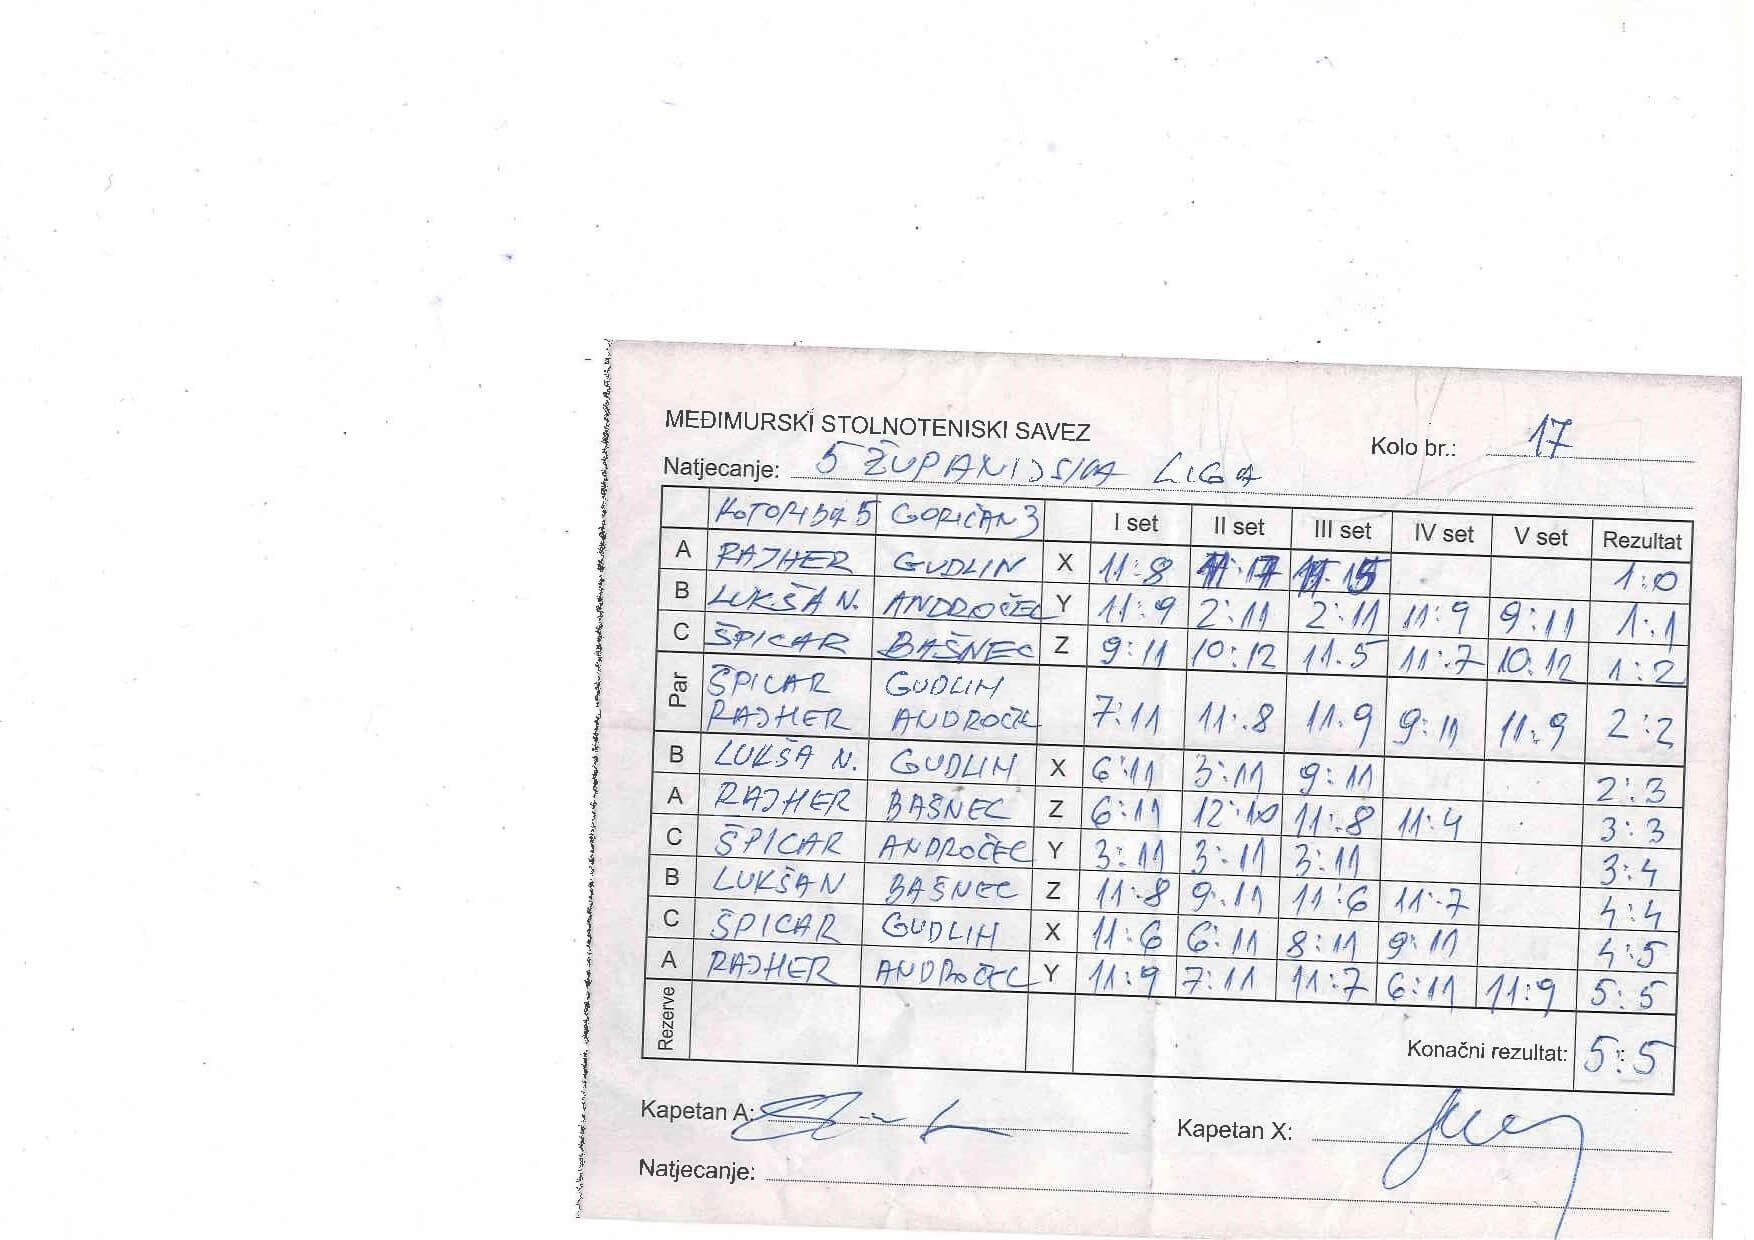 MEĐIMURSKI STOLNOTENISKI SAVEZ
Kolo br.: 17
Natjecanje: 5 ŽUPANIJSKA LIGA
KOTORIBA 5 GORIČAN 3 I set II set III set IV set V set Rezultat
A RAJHER GUDLIN X 11:8 1:0
B LUKŠA N. ANDROČEC Y 11:9 2:11 2:11 11:9 9:11 1:1
C ŠPICAR BAŠNEC Z 9:11 10:12 11:5 11:7 10:12 1:2
Par ŠPICAR GUDLIN
RAJHER ANDROČEC 7:11 11:8 11:9 9:11 11:9 2:2
B LUKŠA N. GUDLIN X 6:11 3:11 9:11 2:3
A RAJHER BAŠNEC Z 6:11 12:10 11:8 11:4 3:3
C ŠPICAR ANDROČEC Y 3:11 3:11 3:11 3:4
B LUKŠA N BAŠNEC Z 11:8 9:11 11:6 11:7 4:4
C ŠPICAR GUDLIN X 11:6 6:11 8:11 9:11 4:5
A RAJHER ANDROČEC Y 11:9 7:11 11:7 6:11 11:9 5:5
Rezerve Konačni rezultat: 5:5
Kapetan A: Kapetan X:
Natjecanje: